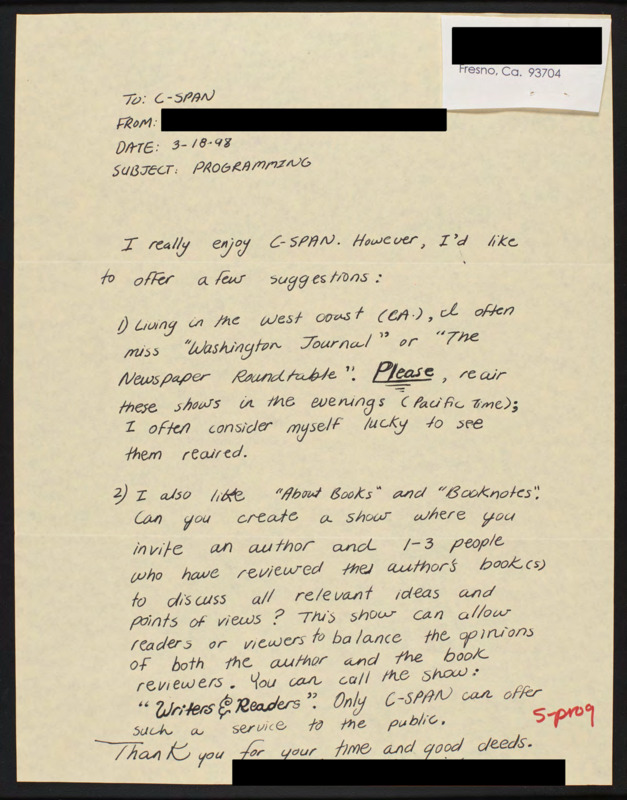 Fresno, Ca. 93704
TO: C-SPAN
FROM:
DATE: 3-18-98
SUBJECT: PROGRAMMING
I really enjoy C-SPAN. However, I'd like
to offer a few suggestions:
1) Living in the west coast (CA.), I often
miss "Washington Journal" or "The
Newspaper Roundtable". Please, reair
these shows in the evenings (Pacific Time);
I often consider myself lucky to see
them reaired.
2) I also like "About Books" and "Booknotes".
Can you create a show where you
invite an author and 1-3 people
who have reviewed the author's book(s)
to discuss all relevant ideas and
points of views? This show can allow
readers or viewers to balance the opinions
of both the author and the book
reviewers. You can call the show:
"Writers & Readers". Only C-SPAN can offer
such a service to the public.
S-prog
Thank you for your time and good deeds.